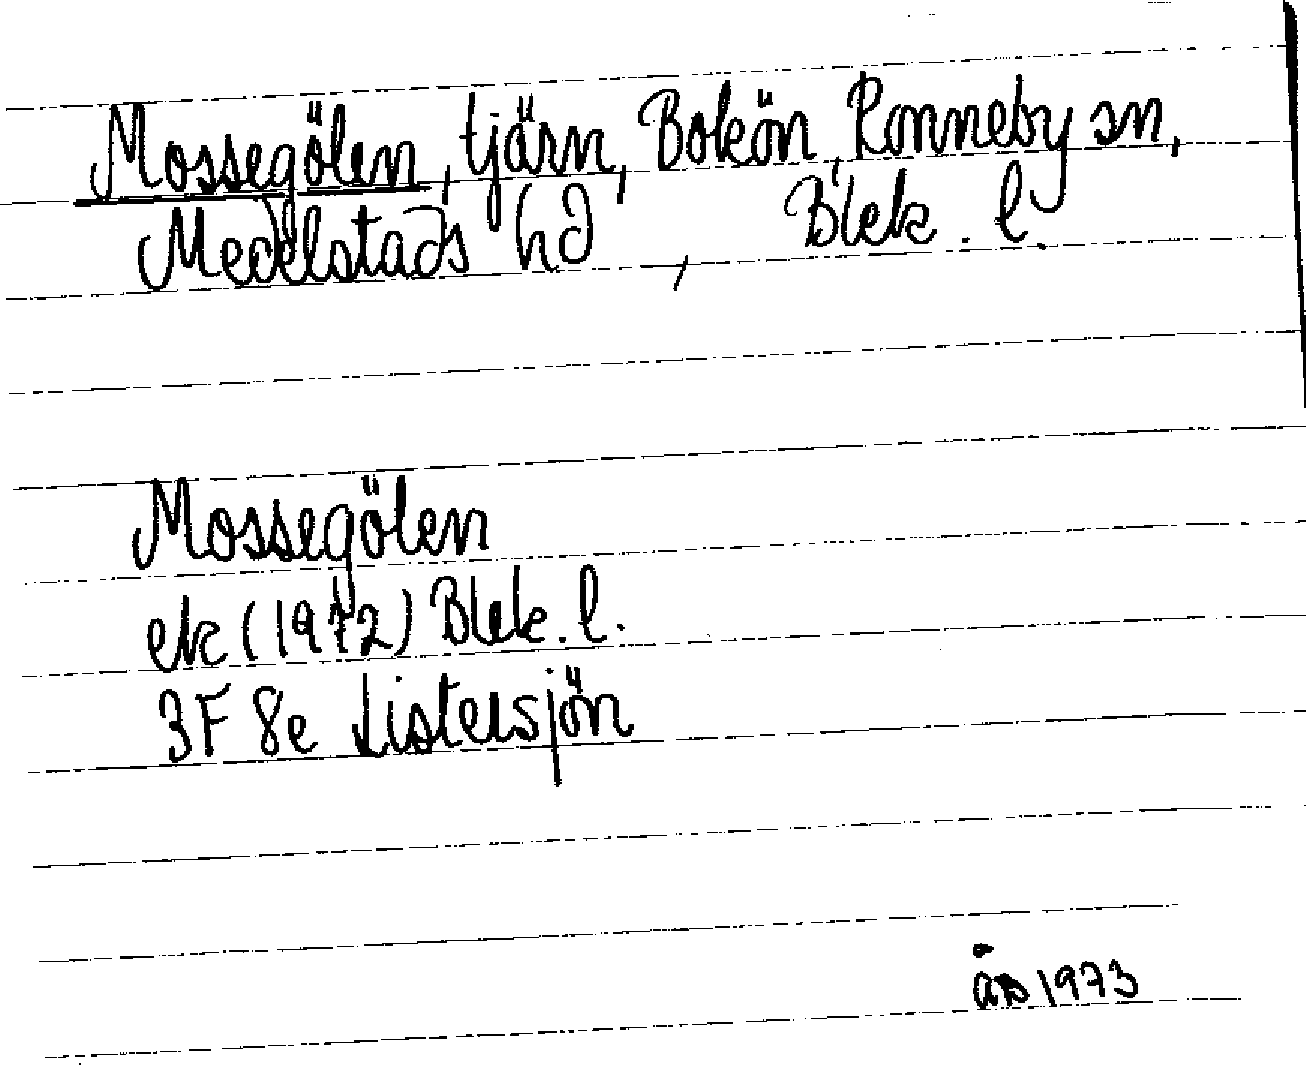 Mossegölen, tjärn, Bokön, Ronneby sn,
Medelstads hd, Blek. l.
Mossegölen
ek (1972) Blek. l.
3F 8e Listersjön
1973